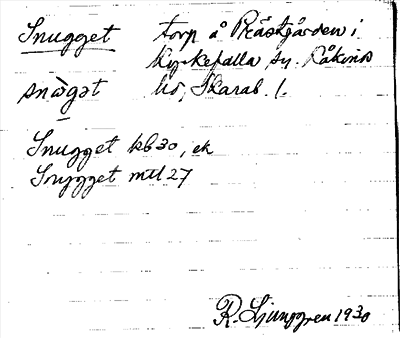 Snugget torp å Prästgården i
Kyrkefalla sn. Kåkinds
snᴐ̀gət hd, Skarab. l.
Snugget kb 30, ek
Snygget mtl 27
R. Ljunggren 1930